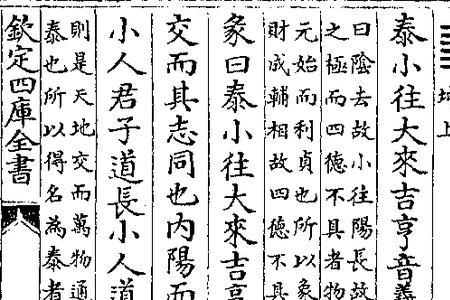 坤上
泰小往大來吉亨音義
曰陰去故小往陽長故
之極而四德不具者物
元始而利貞也所以象
財成輔相故四德不具
彖曰泰小往大來吉亨
交而其志同也内陽而
小人君子道長小人道
則是天地交而萬物通
泰也所以得名為泰者
欽定四庫全書